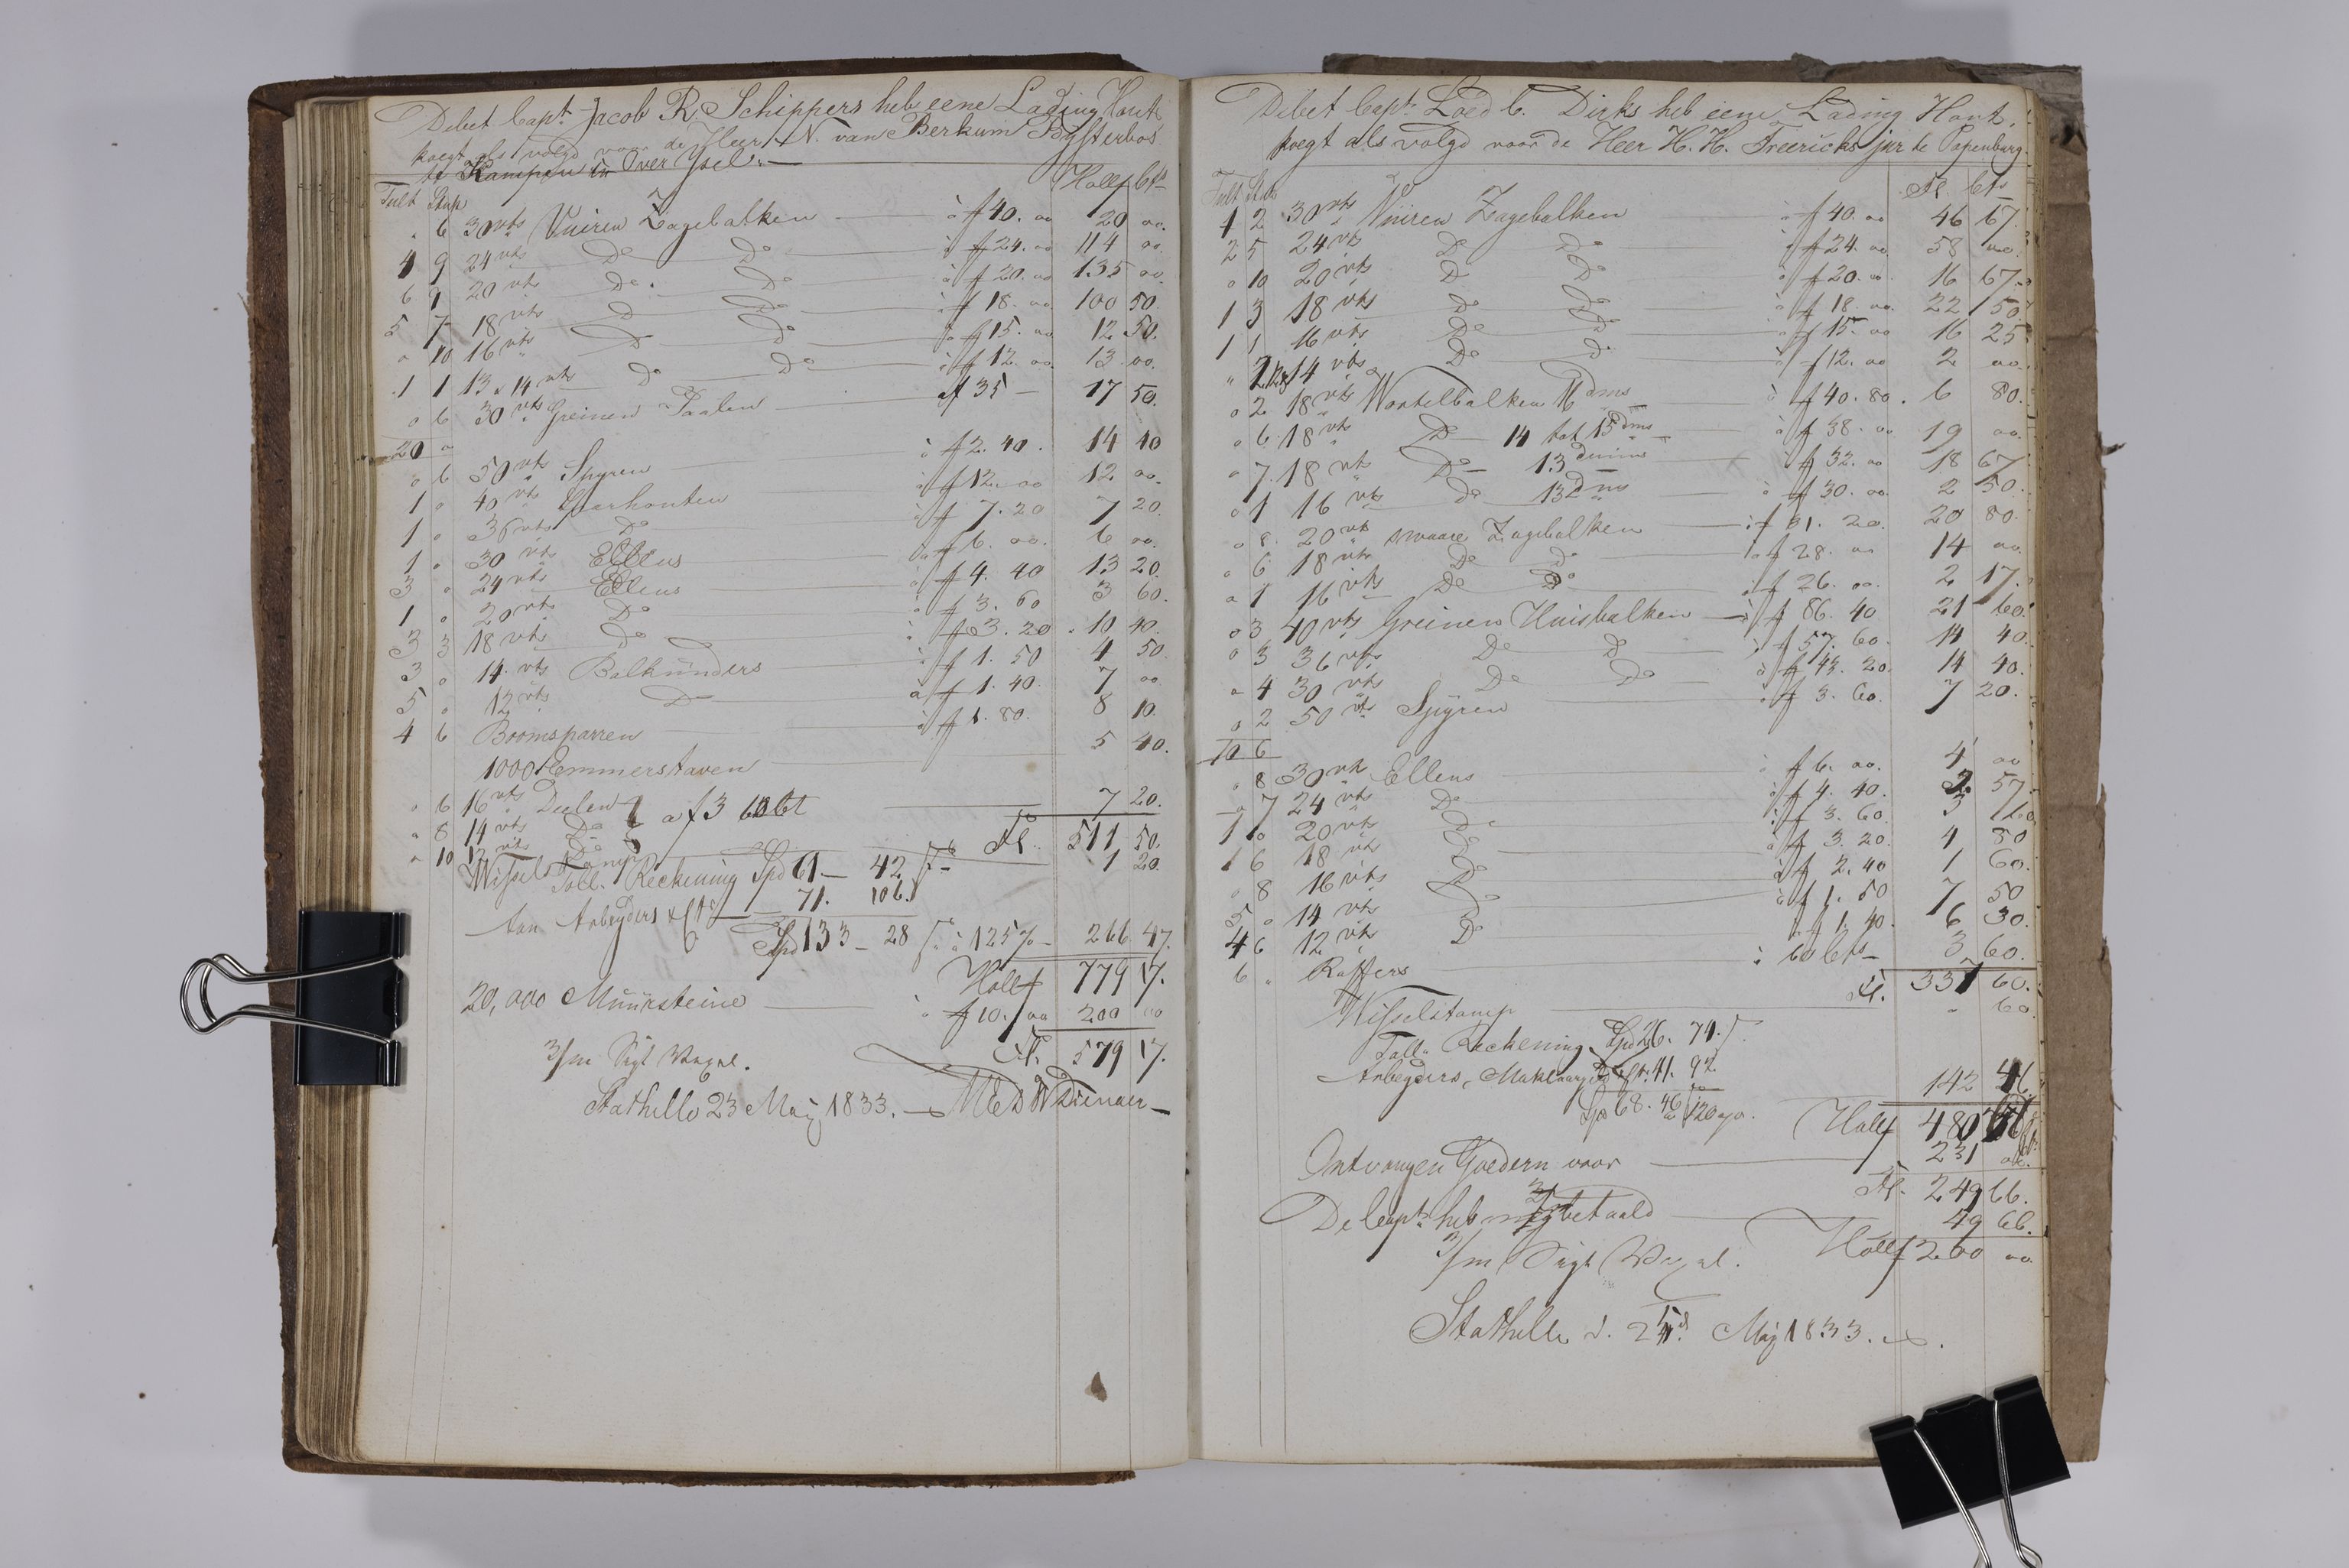 Debet Capt. Jacob R. Schippers heb eene Lading Hout
koegt als volgd voor de Heer N. van Berkum Bysterbos
te Kampen in Over Ysel.
Tult Stup Hollf Cts
" 6 30 vts Vuiren Zagebalken à f 40. 00 20 00.
4 9 24 vts Do Do à f 24. 00 114 00
6 9 20 vts Do. Do à f 20. 00 135 00
5 7 18 vts Do Do à f 18. 00 100 50.
" 10 16 vts Do Do à f 15. 00 12 50.
1 1 13 à 14 vts Do Do à f 12. 00 13 00.
" 6 30 vts Greinen Do af 35 — 17 50.
20 "
" 6 50 vts Spyren à f 2. 40. 14 40
1 " 40 vts à f 12. 00 12 00.
1 " 36 vts Do à f 7. 20 7 20.
1 " 30 vts Ellens à f 6. 00. 6 00.
3 " 24 vts Ellens à f 4. 40 13 20.
1 " 20 vts Do à f 3. 60 3 60.
3 3 18 vts Do à f 3. 20 10 40.
3 " 14 vts Balkünders à f 1. 50 4 50
5 " 12 vts Do à f 1. 40. 7 00
4 6 Boomsparren à f 1. 80. 8 10.
1000 Emmerstaven 5 40.
" 6 16 vts Deelen
" 8 14 vts Do a f 3 60 Ct 7 20.
" 10 12 vts Do
Fl. 511 50.
Wissel Stamp 1 20.
Toll. Reckening Spd 61 — 42
Aan Arbeyders &c 71. 106.
Spd 133 — 28 à 125% — 266 47.
Hollf 779 17.
20,000 Müürsteine à f 10. 00 200 00
Fl. 579 17.
3/m Sigt Wexel.
Stathelle 23 May 1833.
Debet Capt. Loed C. Dirks heb eene Lading Hout.
koegt als volgd voor de Heer H. H. Freerichs jnr te Papenburg.
Tult Stük Fl. Cts
1 2 30 vts Vüiren Zagebalken à f 40. 00 46 67.
2 5 24 vts Do Do à f 24. 00 58 00.
" 10 20 vts Do Do à f 20. 00 16 67.
1 3 18 vts Do Do à f 18. 00. 22 50.
1 1 16 vts Do Do à f 15. 00 16 25
" 2 14 vts Do à f 12. 00 2 00.
" 2 18 vts Wortelbalken 16 dms à f 40. 80. 6 80.
" 6 18 vts Do 14 tot 15 dms à f 38. 00 19 00.
" 7 18 vts Do 13 duims à f 32. 00 18 67
" 1 16 vts Do 13 dms à f 30. 00. 2 50.
" 8 20 vts swaare Zagebalken à f 31. 20. 20 80.
" 6 18 vts Do Do à f 28. 00 14 00
" 1 16 vts Do Do à f 26. 00. 2 17.
" 3 40 vts Greinen Huisbalken à f 86. 40 21 60.
" 3 36 vts Do Do à f 57. 60. 14 40.
" 4 30 vts Do Do à f 43. 20. 14 40.
" 2 50 vts Spyren à f 3. 60. 7 20.
10 6
" 8 30 vts Ellens à f 6. 00. 4 00
" 7 24 vts Do à f 4. 40. 2. 57.
1 " 20 vts Do à f 3. 60. 3 60
1 6 18 vts Do à f 3. 20. 4 80
" 8 16 vts Do à f 2. 40 1 60.
5 " 14 vts Do à f 1. 50 7 50
4 6 12 vts Do à f 1. 40. 6 30.
6 " Raffers à 60 Cts — 3 60.
Fl. 337 60.
Wisselstamp " 60
Toll. Reckening Spd 26. 74.
Arbeyders, Maklaargeld &c 41. 92
Spd 68. 46 à 120 142 46
Hollf 480 66
Ontvangen Goedern voor 231 00.
Fl. 249 66.
De Capt. heb mij betaald 49 66.
3/m Sigt Wexel. Hollf 200 00
Stathelle d. 24 May 1833.